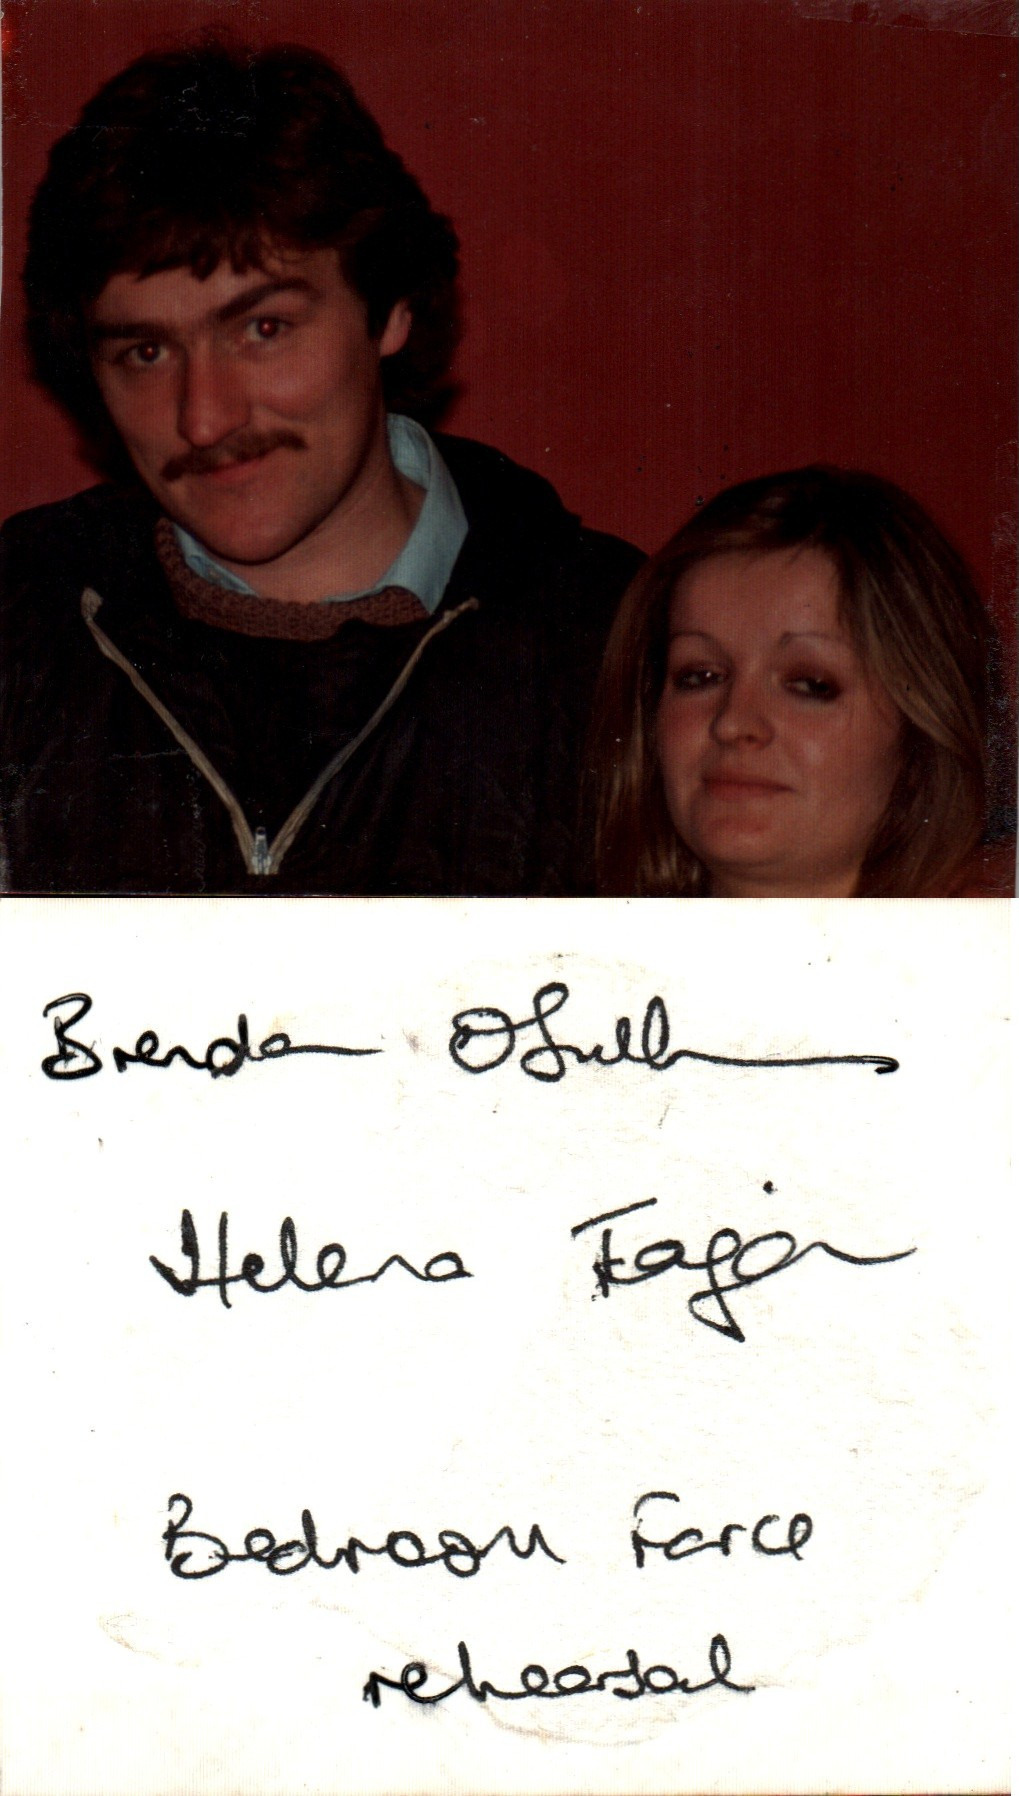 Brendan O'Sullivan
Helena Fagan
Bedroom Farce
rehearsal